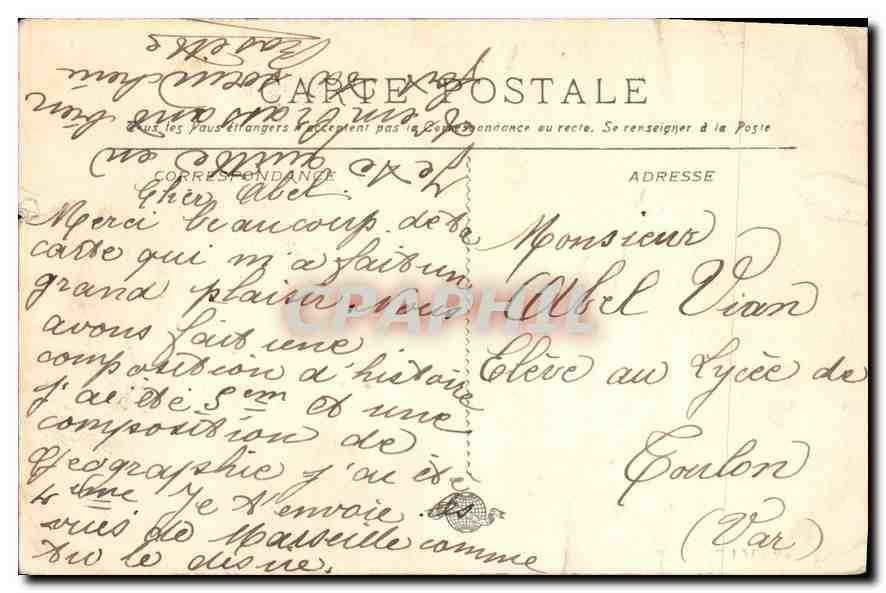 CARTE POSTALE
Tous les Pays étrangers n'acceptent pas la Correspondance au recto. Se renseigner à la Poste
CORRESPONDANCE
Cher Abel.
Merci beaucoup de ta
carte qui m'a fait un
grand plaisir. Nous
avons fait une
composition d'histoire
j'ai été 5em et une
composition de
Géographie j'ai été
4ème Je t'envoie des
vues de Marseille comme
tu le désire.
Je te quitte en
t'embrassant bien
fort
ADRESSE
Monsieur
Abel Vian
Elève au Lycée de
Toulon
(Var)
CPAPHIL